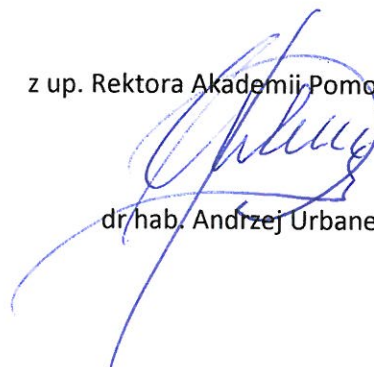 z up. Rektora Akademii Pomo
dr hab. Andrzej Urbane